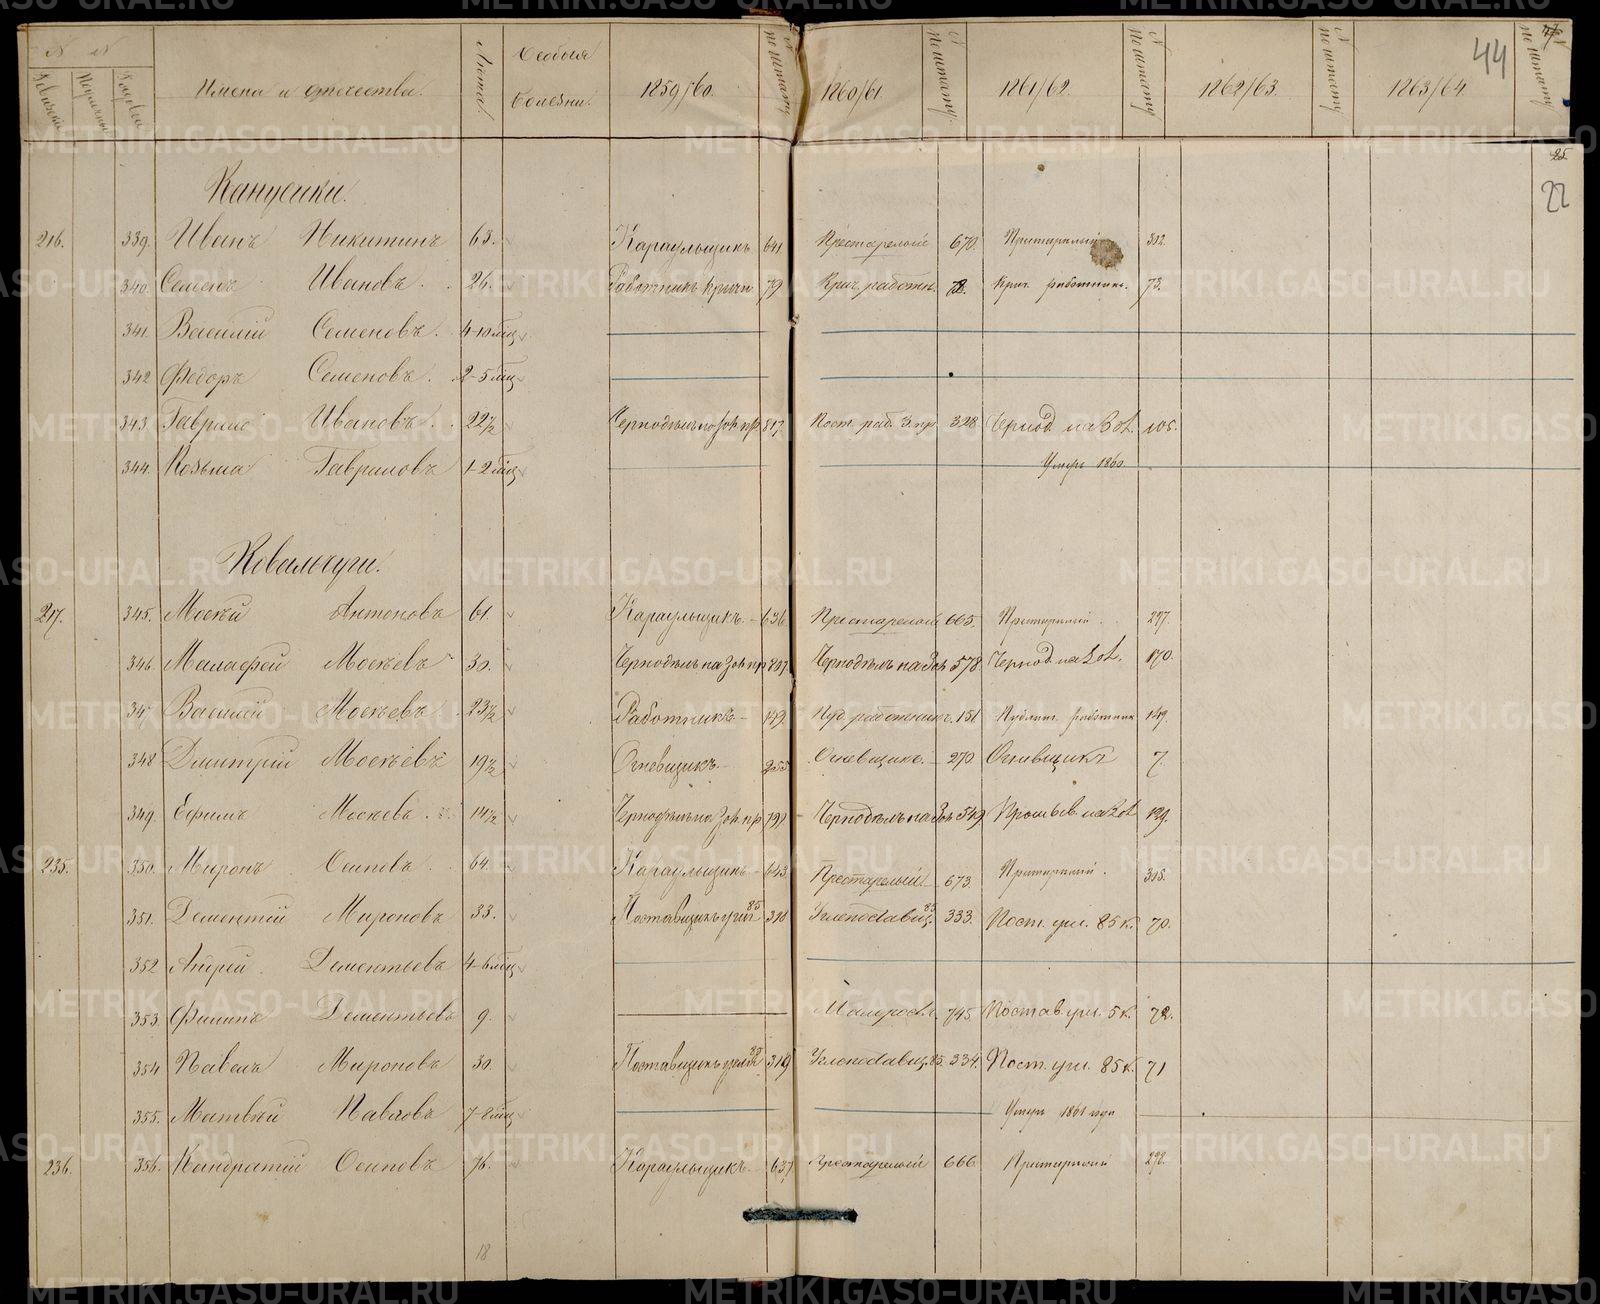 N N
Имена и отечества.
Лѣта
Особыя болезни.
1859/60.
N по штату
1860/61
N по штату
1861/62.
N по штату
1862/63.
N по штату
1863/64.
N по штату
44
25.
22
216. 339. Иванъ Никитинъ 63. Караульщикъ 641. Престарелый 670. Пристарелый 302.
340. Семенъ Ивановъ 26. Работникъ кричн 79 Крич. работн. 78. Крич. работник. 73.
341. Василій Семеновъ. 4-10 мѣц
342 Федоръ Семеновъ. 2-5 мѣц
343. Гаврило Ивановъ. 22½ Чернодѣлъ по Зол. пр. 817. Пост. раб. З. пр 328 Чернод. на Зол. 105.
344. Козьма Гавриловъ 1-2 мѣц Умеръ 1860.
Ковальчуги.
217. 345. Мосѣй Антоновъ 61. Караульщикъ. 636. Престарелой 665. Пристарелый 297.
346. Малафей Мосѣевъ 30. Чернодѣлъ на Зол. пр 807. Чернодѣлъ на Зол 578 Чернод. на Зол. 170.
34 Василій Мосѣевъ 23½ Работникъ 149 Пуд. работникъ. 151. Пудлин. работник 149.
348 Дмитрій Мосѣевъ 19½ Огневщикъ 255 Огневщикъ. 270 Огнивщикъ 7.
349. Ефимъ Мосѣевъ. 14½ Чернодѣлъ на Зол. пр. 791 Чернодѣлъ на Зол 549 Промыв. на Зол 129.
235. 350. Миронъ Осиповъ 64. Караульщикъ 643. Престарелый 673. Пристарелый. 305.
351. Дементій Мироновъ 33. Поставщикъ угля 85 318 Углепоставщ. 85 333. Пост. угл. 85 к. 70.
352 Андрей Дементьевъ 4-6 мѣц
353. Филипъ Дементьевъ 9. Малорост. 745 Постав. угл. 5 к. 72.
354 Павелъ Мироновъ 30. Поставщикъ угля 85 319 Углепоставщ. 85. 334. Пост. угл. 85 к. 71
355. Матвѣй Павловъ 7-8 мѣц Умеръ 1861 года
236. 356. Кондратій Осиповъ 76. Караульщикъ. 637 Престарелой 666 Пристарелый 298.
18
METRIKI.GASO-URAL.RU